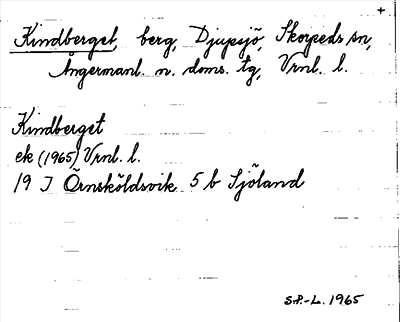 +
Kindberget, berg, Djupsjö, Skorpeds sn,
Ångermanl. n. doms. tg, Vrnl. l.
Kindberget
ek (1965) Vrnl. l.
19 J Örnsköldsvik 5 b Sjöland
S.P.-L. 1965